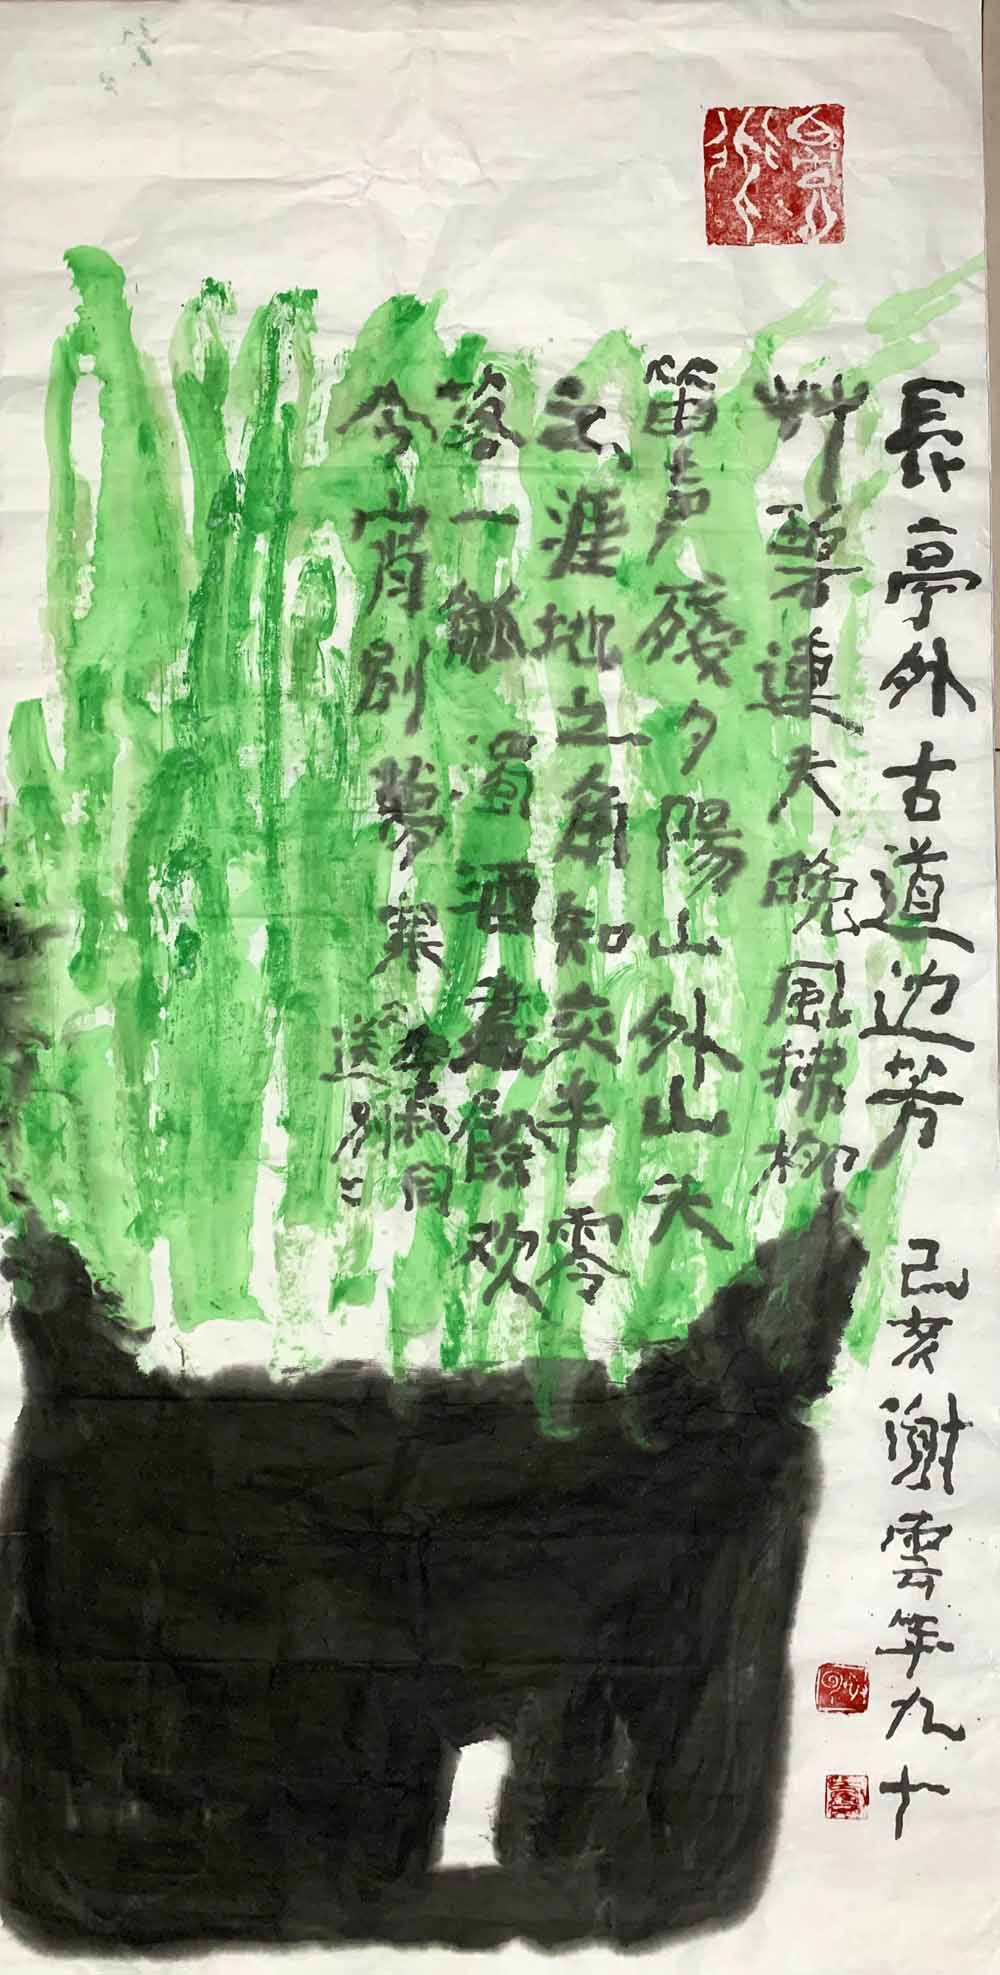 長亭外古道边芳
艸碧連天晚風拂柳
笛声殘夕陽山外山天
之涯地之角知交半零
落一觚濁酒盡餘欢
今宵别夢寒
李叔同
送别
己亥谢雲年九十